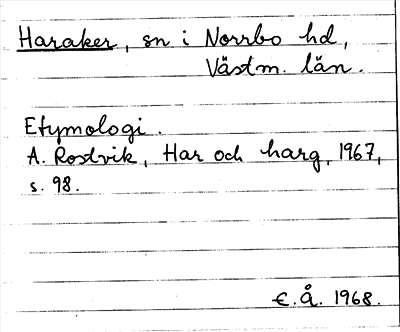 Haraker, sn i Norrbo hd,
Västm. län.
Etymologi.
A. Rostvik, Har och harg, 1967,
s. 98.
E.Å. 1968.